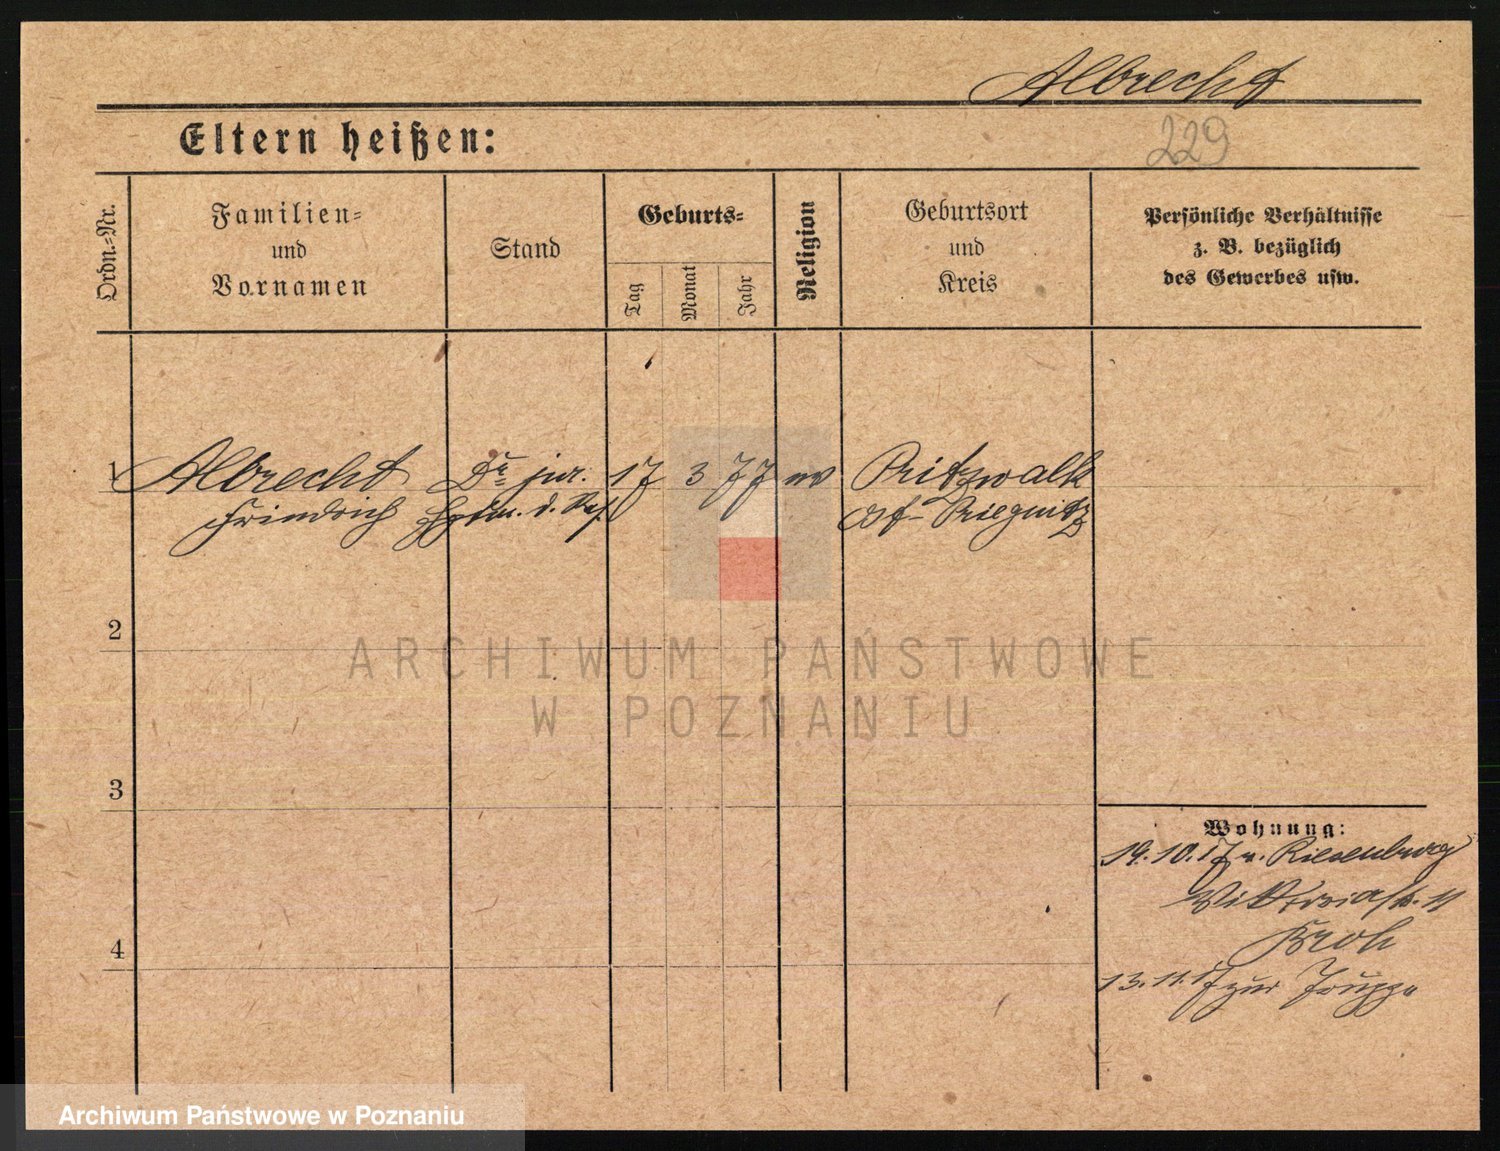 Albrecht
Eltern heißen:
229
Ordn.-Nr.
Familien-
und
Vornamen
Stand
Geburts-
Tag
Monat
Jahr
Religion
Geburtsort
und
Kreis
Persönliche Verhältnisse
z. B. bezüglich
des Gewerbes usw.
1 Albrecht Dr. jur. 17 3 77 ev Pritzwalk
Friedrich Hptm. d. Res. Ost-Priegnitz
2
3
4
Wohnung:
19.10.17 v. Riesenburg
Viktoriastr. 11
13.11.17 zur Truppe
ARCHIWUM PAŃSTWOWE
W POZNANIU
Archiwum Państwowe w Poznaniu